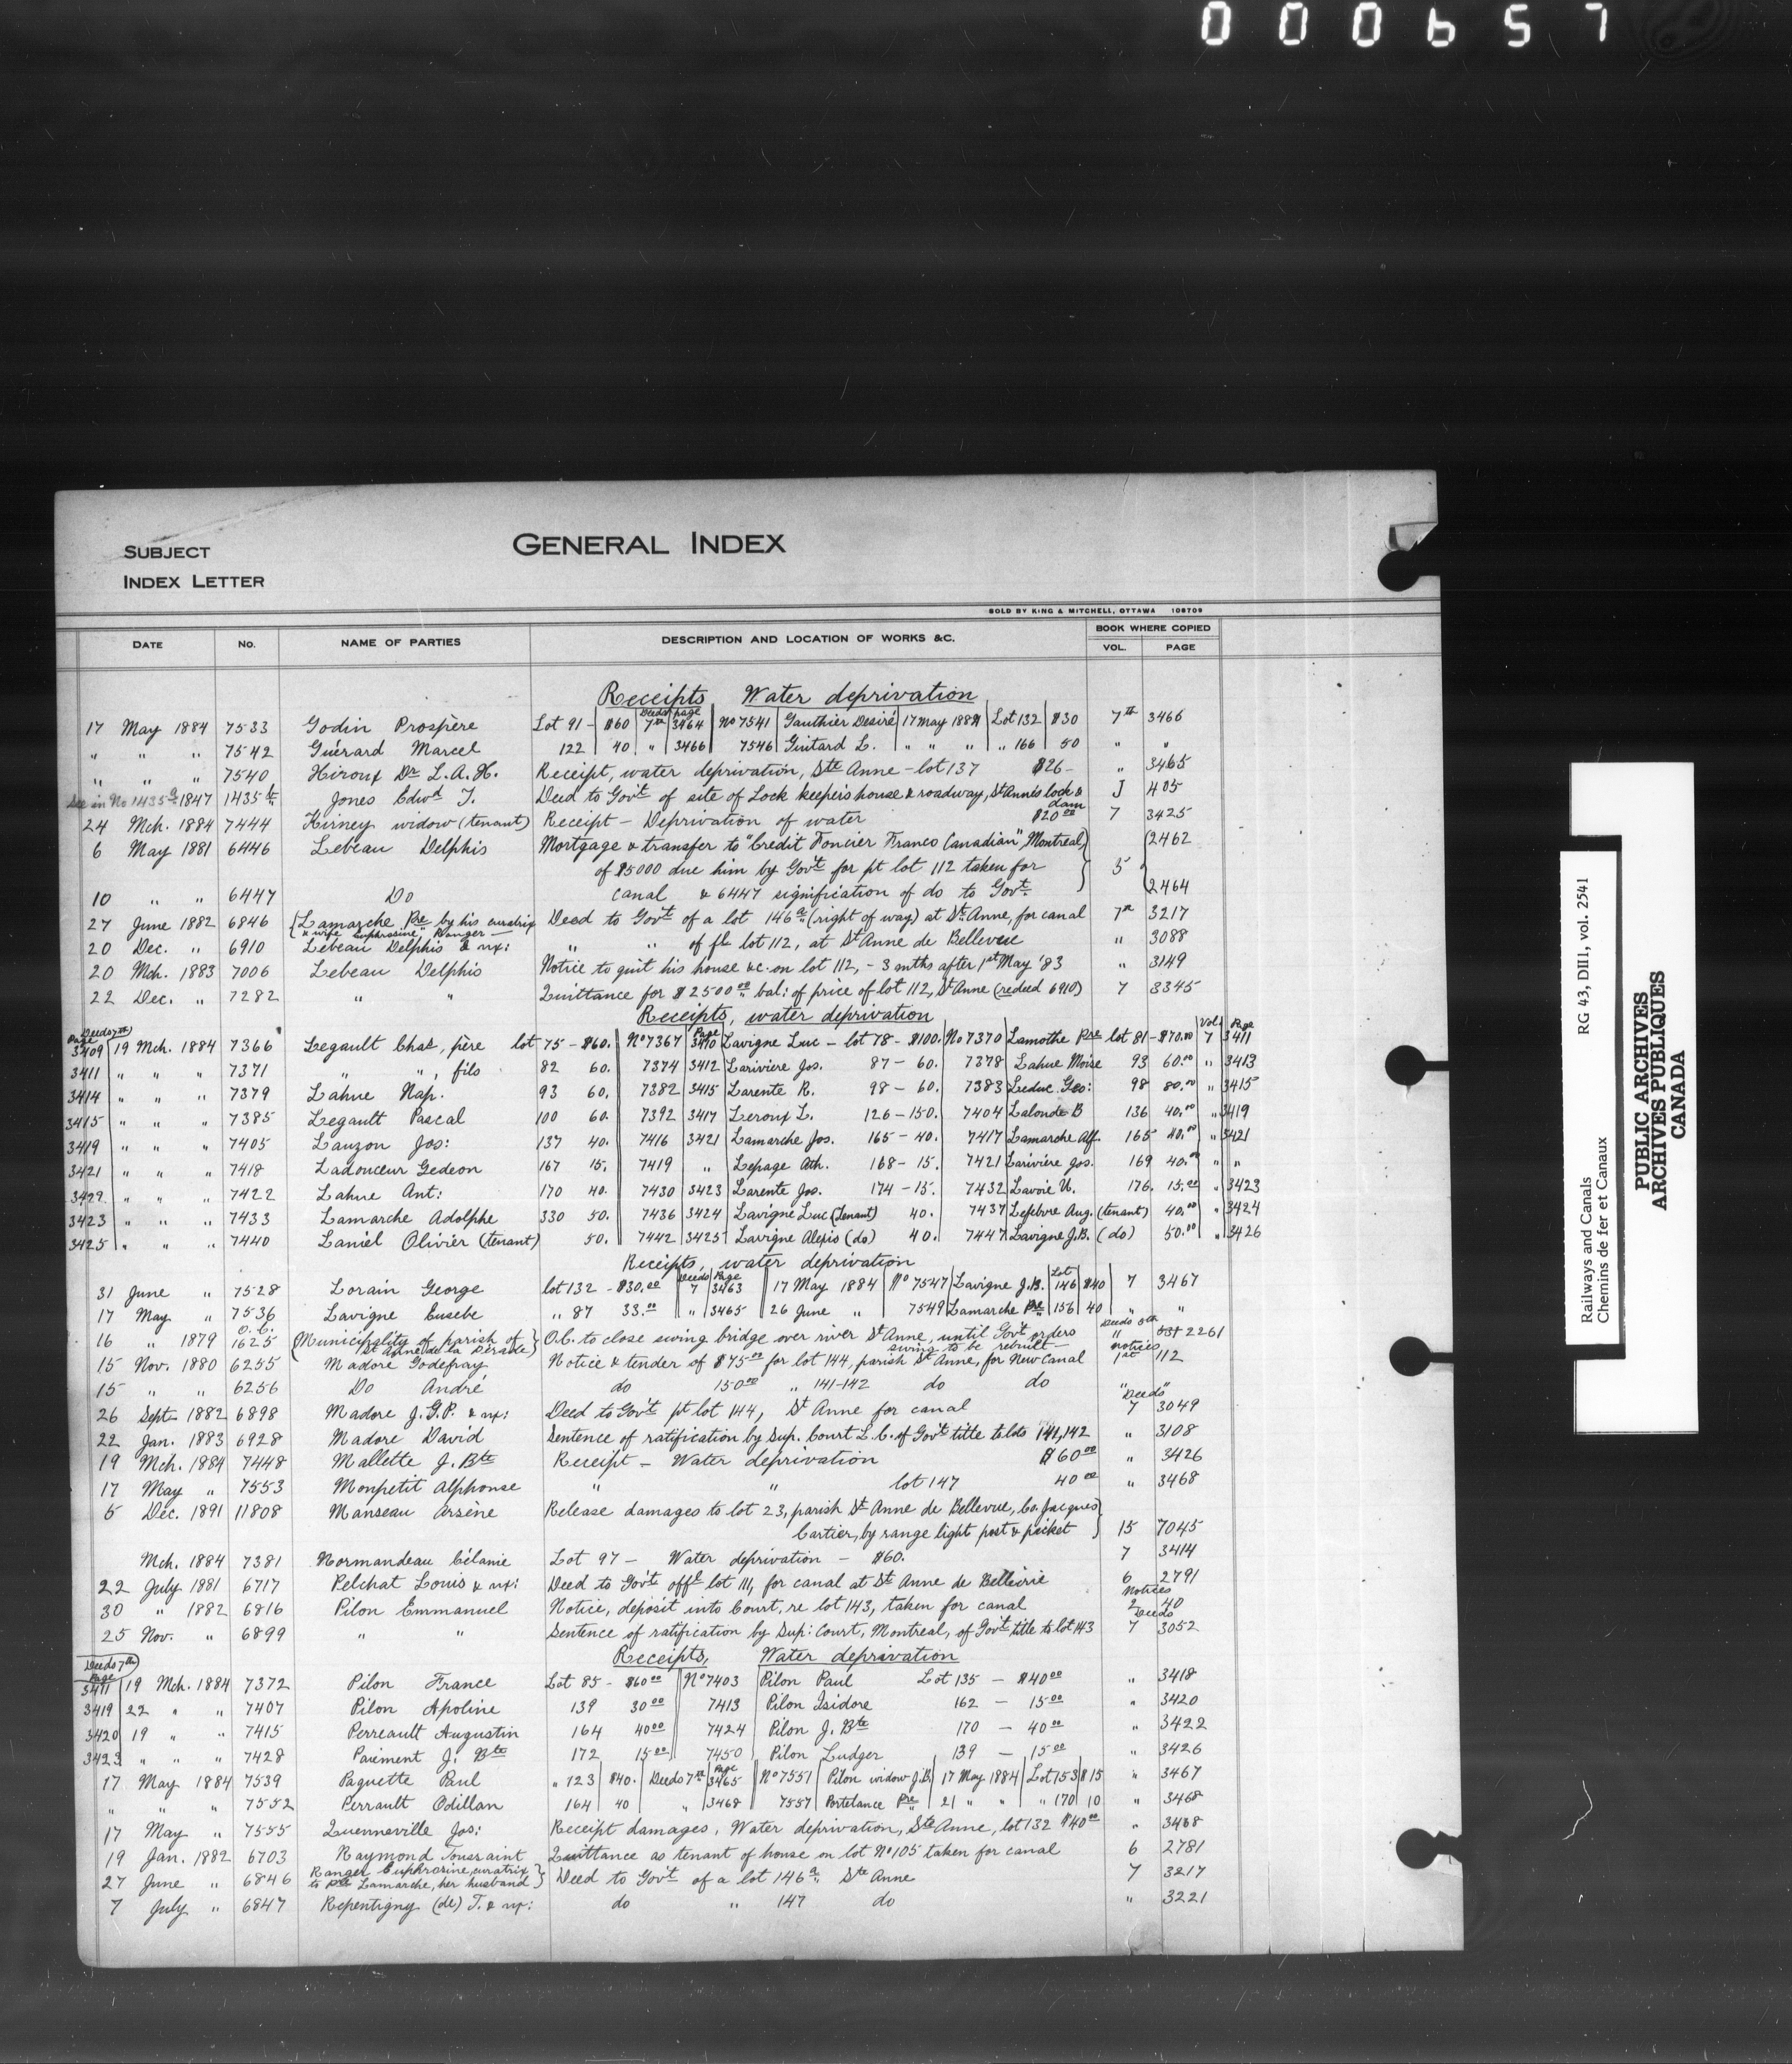 000657
SUBJECT
GENERAL INDEX
INDEX LETTER
SOLD BY KING & MITCHELL, OTTAWA 108709
DATE No. NAME OF PARTIES DESCRIPTION AND LOCATION OF WORKS &C. BOOK WHERE COPIED
VOL. PAGE
Receipts Water deprivation
17 May 1884 7533 Godin Prospère Lot 91 - $60 Deeds 7th page 3464 No 7541 Gauthier Desiré 17 May 1884 Lot 132 $30 7th 3466
" " " 7542 Guérard Marcel 122 40 " 3466 7546 Guitard L. " " " " 166 50 " "
" " " 7540 Hiroux Dr L.A.H. Receipt, water deprivation, Ste Anne - lot 137 $26- " 3465
See in No 1435a 1847 1435b Jones Edwd T. Deed to Govt of site of Lock keeper's house & roadway, St Anne's lock & dam J 405
24 Mch. 1884 7444 Kirney widow (tenant) Receipt - Deprivation of water $20.00 7 3425
6 May 1881 6446 Lebeau Delphis Mortgage & transfer to "Credit Foncier Franco Canadian", Montreal, (2462
of $5000 due him by Govt for pt lot 112 taken for } 5
10 " " 6447 Do canal & 6447 signification of do to Govt. (2464
27 June 1882 6846 {Lamarche Pre by his curatrix Deed to Govt of a lot 146a (right of way) at St Anne, for canal 7th 3217
& wife "Euphrosine" Ranger
20 Dec. " 6910 Lebeau Delphis & ux: " " of pt lot 112, at St Anne de Bellevue " 3088
20 Mch. 1883 7006 Lebeau Delphis Notice to quit his house &c. on lot 112, - 3 mths after 1st May '83 " 3149
22 Dec. " 7282 " " Quittance for $2500.00 bal: of price of lot 112, St Anne (re deed 6910) 7 3345
Receipts, water deprivation
Deeds 7th Page Page Vol. Page
3409 19 Mch. 1884 7366 Legault Chas, père lot 75 - $60. No 7367 3410 Lavigne Luc - lot 78 - $100. No 7370 Lamothe Pre lot 81 - $70.00 7 3411
3411 " " " 7371 " ", fils 82 60. 7374 3412 Lariviere Jos. 87 - 60. 7378 Lahue Moise 93 60.00 " 3413
3414 " " " 7379 Lahue Nap. 93 60. 7382 3415 Larente R. 98 - 60. 7383 Leduc Geo: 98 80.00 " 3415
3415 " " " 7385 Legault Pascal 100 60. 7392 3417 Leroux L. 126 - 150. 7404 Lalonde B 136 40.00 " 3419
3419 " " " 7405 Lauzon Jos: 137 40. 7416 3421 Lamarche Jos. 165 - 40. 7417 Lamarche Alf. 165 40.00 " 3421
3421 " " " 7418 Ladouceur Gedeon 167 15. 7419 " Lepage Ath. 168 - 15. 7421 Lariviere Jos. 169 40.00 " "
3422 " " " 7422 Lahue Ant: 170 40. 7430 3423 Larente Jos. 174 - 15. 7432 Lavoie U. 176. 15.00 " 3423
3423 " " " 7433 Lamarche Adolphe 330 50. 7436 3424 Lavigne Luc (tenant) 40. 7437 Lefebvre Aug. (tenant) 40.00 " 3424
3425 " " " 7440 Laniel Olivier (tenant) 50. 7442 3425 Lavigne Alexis (do) 40. 7447 Lavigne J.B. (do) 50.00 " 3426
Receipts, water deprivation
31 June " 7528 Lorain George lot 132 - $30.00 Deeds 7 Page 3463 17 May 1884 No 7547 Lavigne J.B. Lot 146 $40 7 3467
17 May " 7536 Lavigne Eusebe " 87 33.00 " 3465 26 June " 7549 Lamarche Pre 156 40 " "
16 " 1879 O.C. 1625 {Municipality of parish of St Anne de la Perade} O.C. to close swing bridge over river St Anne, until Govt orders swing to be rebuilt - Deeds 5th " 2261
15 Nov. 1880 6255 Madore Godefroy Notice & tender of $75.00 for lot 144, parish St Anne, for New Canal notices 1st 112
15 " " 6256 Do André do 150.00 " 141-142 do do
26 Sept 1882 6898 Madore J.G.P. & ux: Deed to Govt pt lot 144, St Anne for canal "Deeds" 7 3049
22 Jan. 1883 6928 Madore David Sentence of ratification by Sup. Court L.C. of Govt title to lots 141,142 " 3108
19 Mch. 1884 7448 Mallette J. Bte Receipt - Water deprivation $60.00 " 3426
17 May " 7553 Monpetit Alphonse " " lot 147 40.00 " 3468
5 Dec. 1891 11808 Manseau Arsène Release damages to lot 23, parish St Anne de Bellevue, Co. Jacques
Cartier, by range light post & picket } 15 7045
Mch. 1884 7381 Normandeau Célanie Lot 97 - Water deprivation - $60. 7 3414
22 July 1881 6717 Pelchat Louis & ux: Deed to Govt of pt lot 111, for canal at St Anne de Bellevue 6 2791
30 " 1882 6816 Pilon Emmanuel Notice, deposit into Court, re lot 143, taken for canal Notices 2 40
25 Nov. " 6899 " " Sentence of ratification by Sup: Court, Montreal, of Govt title to lot 143 Deeds 7 3052
Receipts, Water deprivation
Deeds 7th
Page
3411 19 Mch. 1884 7372 Pilon France Lot 85 - $60.00 No 7403 Pilon Paul Lot 135 - $40.00 " 3418
3419 22 " " 7407 Pilon Apoline 139 30.00 7413 Pilon Isidore 162 - 15.00 " 3420
3420 19 " " 7415 Perreault Augustin 164 40.00 7424 Pilon J. Bte 170 - 40.00 " 3422
3423 " " " 7428 Paiement J. Bte 172 15.00 7450 Pilon Ludger 139 - 15.00 " 3426
17 May 1884 7539 Paquette Paul " 123 $40. Deeds 7th Page 3465 No 7551 Pilon widow J.B. 17 May 1884 Lot 153 $15 " 3467
" " " 7552 Perrault Odillan 164 40 " 3468 7557 Portelance Pre 21 " " " 170 10 " 3468
17 May " 7555 Quenneville Jos: Receipt damages, Water deprivation, Ste Anne, lot 132 $40.00 " 3468
19 Jan. 1882 6703 Raymond Toussaint Quittance as tenant of house on lot No 105 taken for canal 6 2781
27 June " 6846 Ranger Euphrosine, curatrix to Pre Lamarche, her husband } Deed to Govt of a lot 146a Ste Anne 7 3217
7 July " 6847 Repentigny (de) T. & ux: do " 147 do " 3221
Railways and Canals RG 43, DIII, vol. 2541
Chemins de fer et Canaux
PUBLIC ARCHIVES
ARCHIVES PUBLIQUES
CANADA